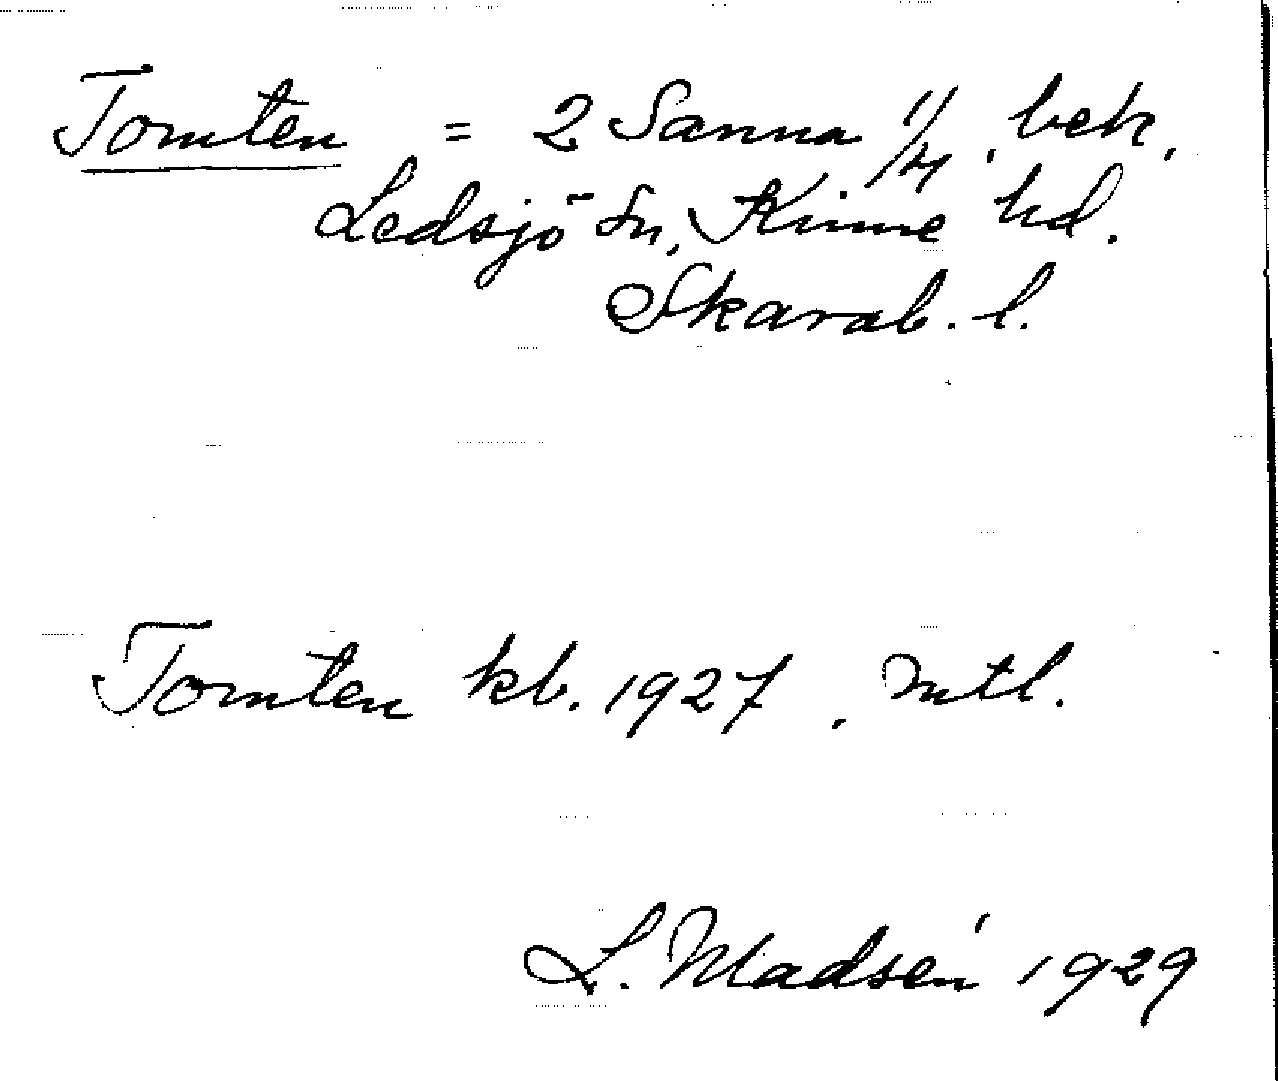 Tomten = 2 Sanna 1/4, beh.
Ledsjö sn, Kinne hd.
Skarab. l.
Tomten kb. 1927, mtl.
L. Madsén 1929